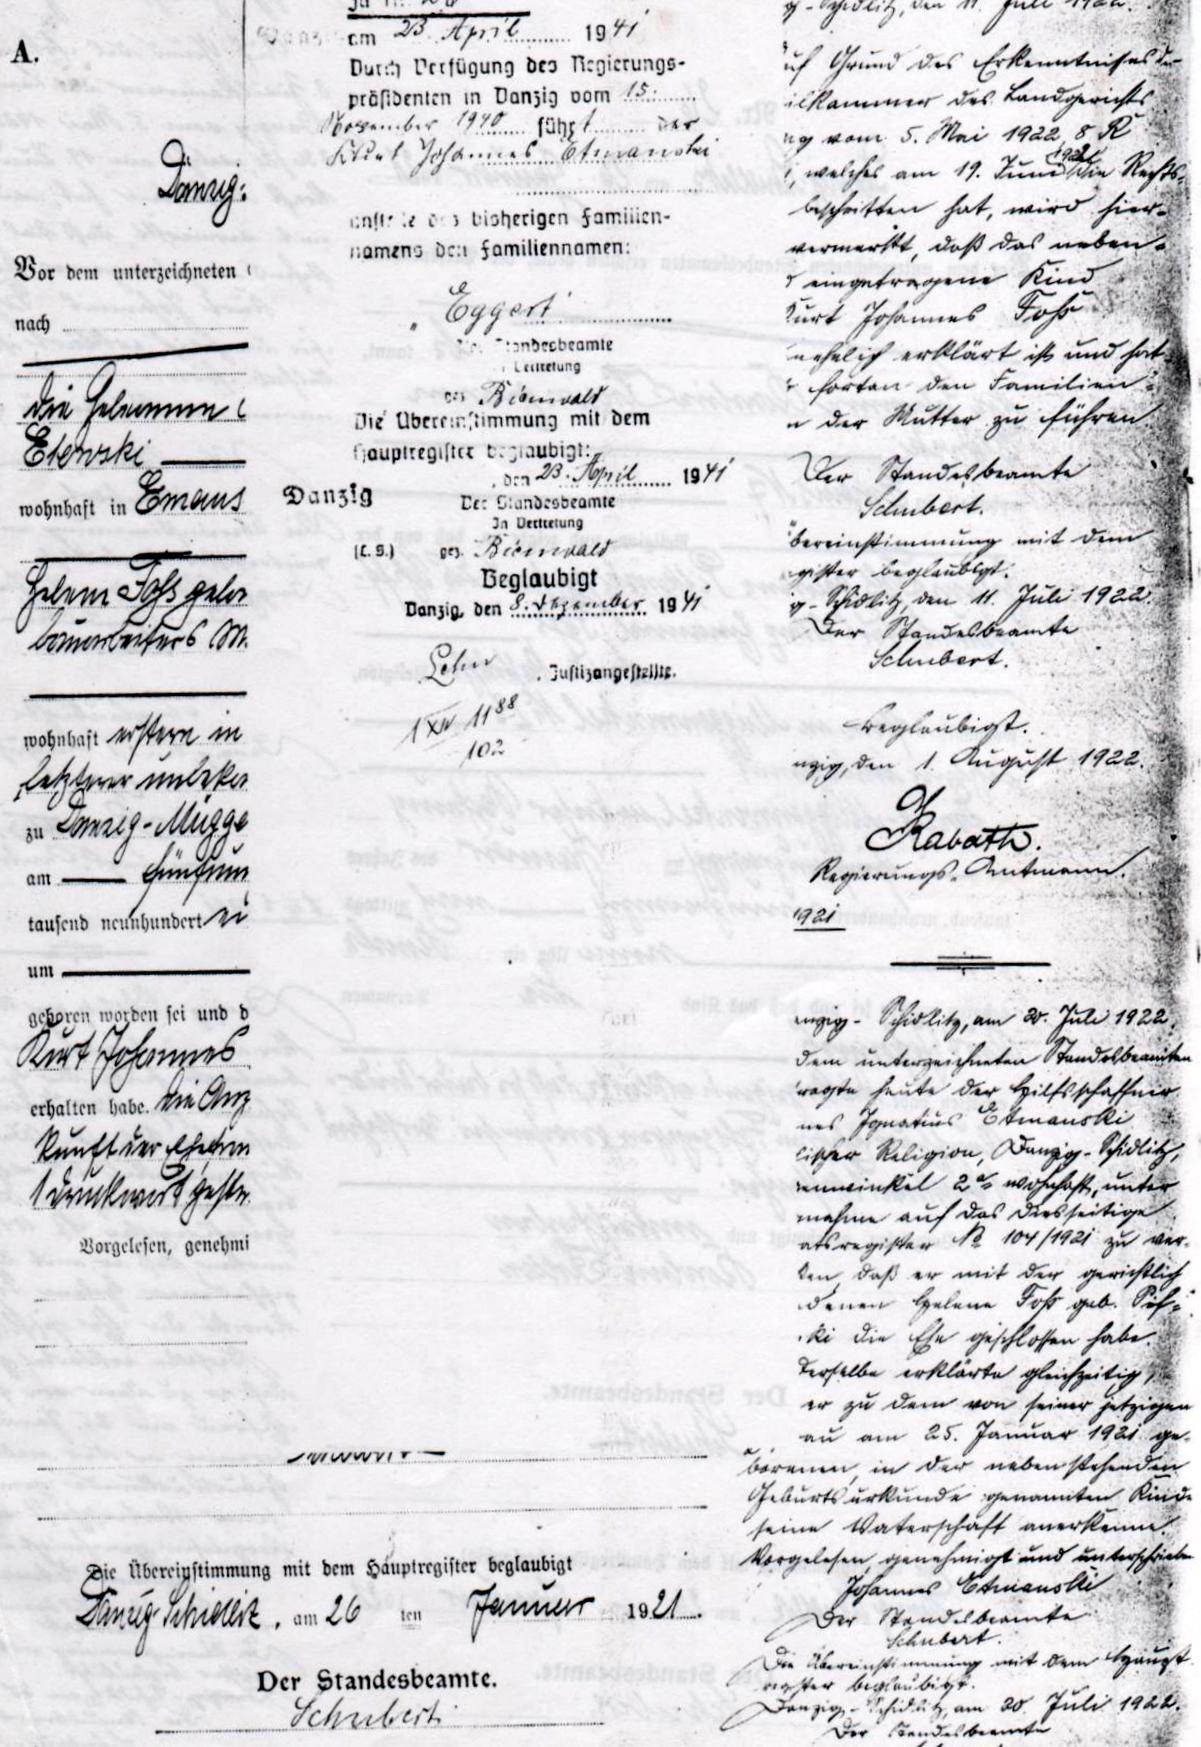 A.
Danzig:
Vor dem unterzeichneten
nach
die Hebamme
Etewski
wohnhaft in Emaus
Helene Foß gebor
bauarbeiters M.
wohnhaft erstere in
letzterer unbeka
zu Danzig-Mügge
am fünfun
tausend neunhundert ei
um
geboren worden sei und d
Kurt Johannes
erhalten habe. Die Anz
kunft der Ehefrau
1 Druckwort gestr.
Vorgelesen, genehmi
am 23. April 1941
Durch Verfügung des Regierungs-
präsidenten in Danzig vom 15.
November 1940 führt der
Kurt Johannes Etmanski
anstelle des bisherigen Familien-
namens den Familiennamen:
„Eggert
Der Standesbeamte
In Vertretung
gez. Bienwald
Die Übereinstimmung mit dem
Hauptregister beglaubigt:
Danzig, den 23. April 1941
Der Standesbeamte
In Vertretung
(L. S.) gez. Bienwald
Beglaubigt
Danzig, den 8. Dezember 1941
Justizangestellte.
1188
102
Die Übereinstimmung mit dem Hauptregister beglaubigt
Danzig-Schidlitz, am 26 ten Januar 1921.
Der Standesbeamte.
Schubert
g-Schidlitz, den 11. Juli 1922.
uf Grund des Erkenntnisses der
ilkammer des Landgerichts
ig vom 5. Mai 1922 8 R
, welches am 19. Juni 1922 die Rechts-
beschritten hat, wird hier-
vermerkt, daß das neben-
eingetragene Kind
Kurt Johannes Foß
unehelich erklärt ist und hat
fortan den Familien-
n der Mutter zu führen.
Der Standesbeamte
Schubert.
bereinstimmung mit dem
gister beglaubigt.
ig-Schidlitz, den 11. Juli 1922.
Der Standesbeamte
Schubert.
Beglaubigt.
nzig, den 1. August 1922.
Rabath.
Regierungs-Amtmann.
1921
anzig-Schidlitz, am 20. Juli 1922.
dem unterzeichneten Standesbeamten
ragte heute der Hilfsschaffner
nes Ignatius Etmanski
lischer Religion, Danzig-Schidlitz,
nwinkel 2a wohnhaft, unter
nahme auf das diesseitige
atsregister No 104/1921 zu ver-
ken, daß er mit der gerichtlich
denen Helene Foß geb. Pif-
ki die Ehe geschlossen habe.
Derselbe erklärte gleichzeitig,
er zu dem von seiner jetzigen
au am 25. Januar 1921 ge-
borenen, in der nebenstehenden
Geburtsurkunde genannten Kinde
seine Vaterschaft anerkenne.
Vorgelesen genehmigt und unterschrieben
Johannes Etmanski
Der Standesbeamte
Schubert.
Die Übereinstimmung mit dem Haupt
register beglaubigt.
Danzig-Schidlitz, am 20 Juli 1922.
Der Standesbeamte